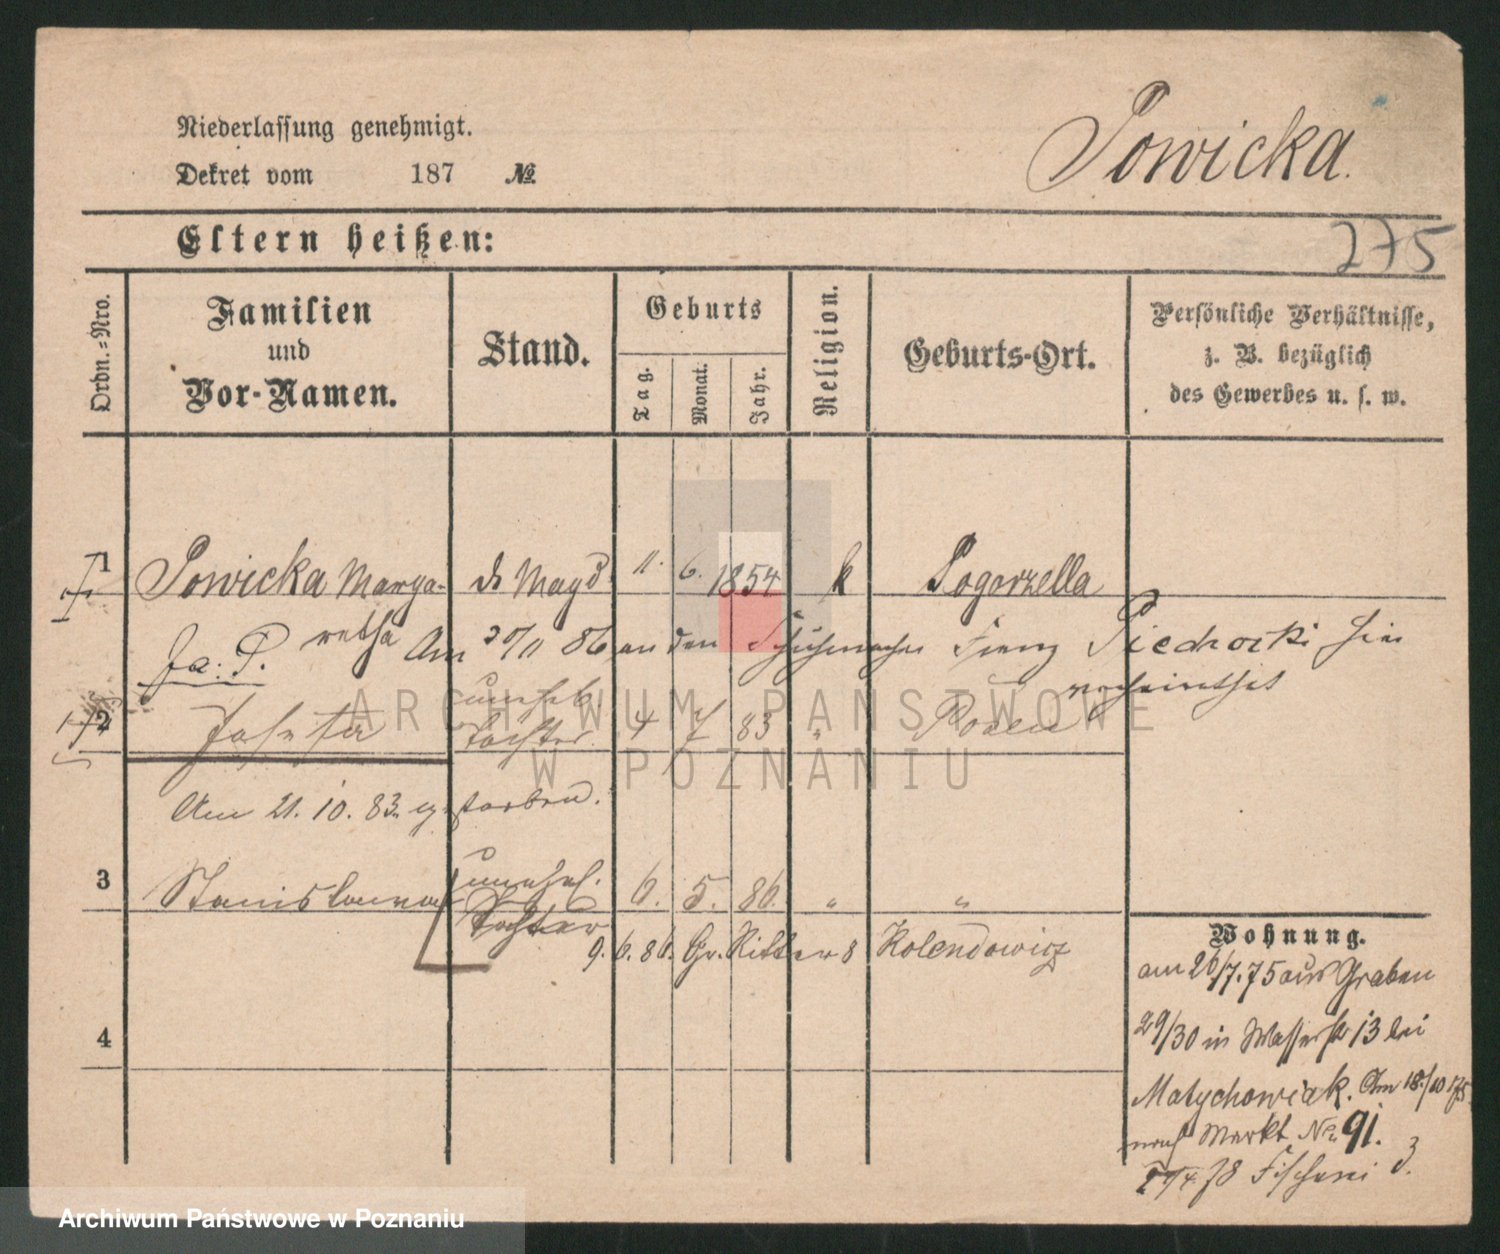 Niederlassung genehmigt.
Dekret vom 187 №
Powicka.
Eltern heißen:
275
Ordn.=Nro.
Familien
und
Vor-Namen.
Stand.
Geburts
Tag.
Monat.
Jahr.
Religion.
Geburts-Ort.
Persönliche Verhältnisse,
z. B. bezüglich
des Gewerbes u. s. w.
1 Powicka Marga- d. Magd 11. 6. 1854 k Pogorzella
retha Am 30/11 86 an den Schuhmacher Franz Piechocki hier
verheirathet
Fa: P.
unehel.
2 Tochter 4 7 83 " Posen
Am 21. 10. 83. gestorben.
3 Stanislawa unehel. 6. 5. 86. " "
Tochter
9. 6. 86. Gr. Ritter 8 Kolendowicz
4
Wohnung.
am 26/7. 75 aus Graben
29/30 in Wasserstr 13 bei
Matychowiak. Am 18./10 75
nach Markt No. 91.
/4 78 Fischerei 3.
ARCHIWUM PAŃSTWOWE
W POZNANIU
Archiwum Państwowe w Poznaniu